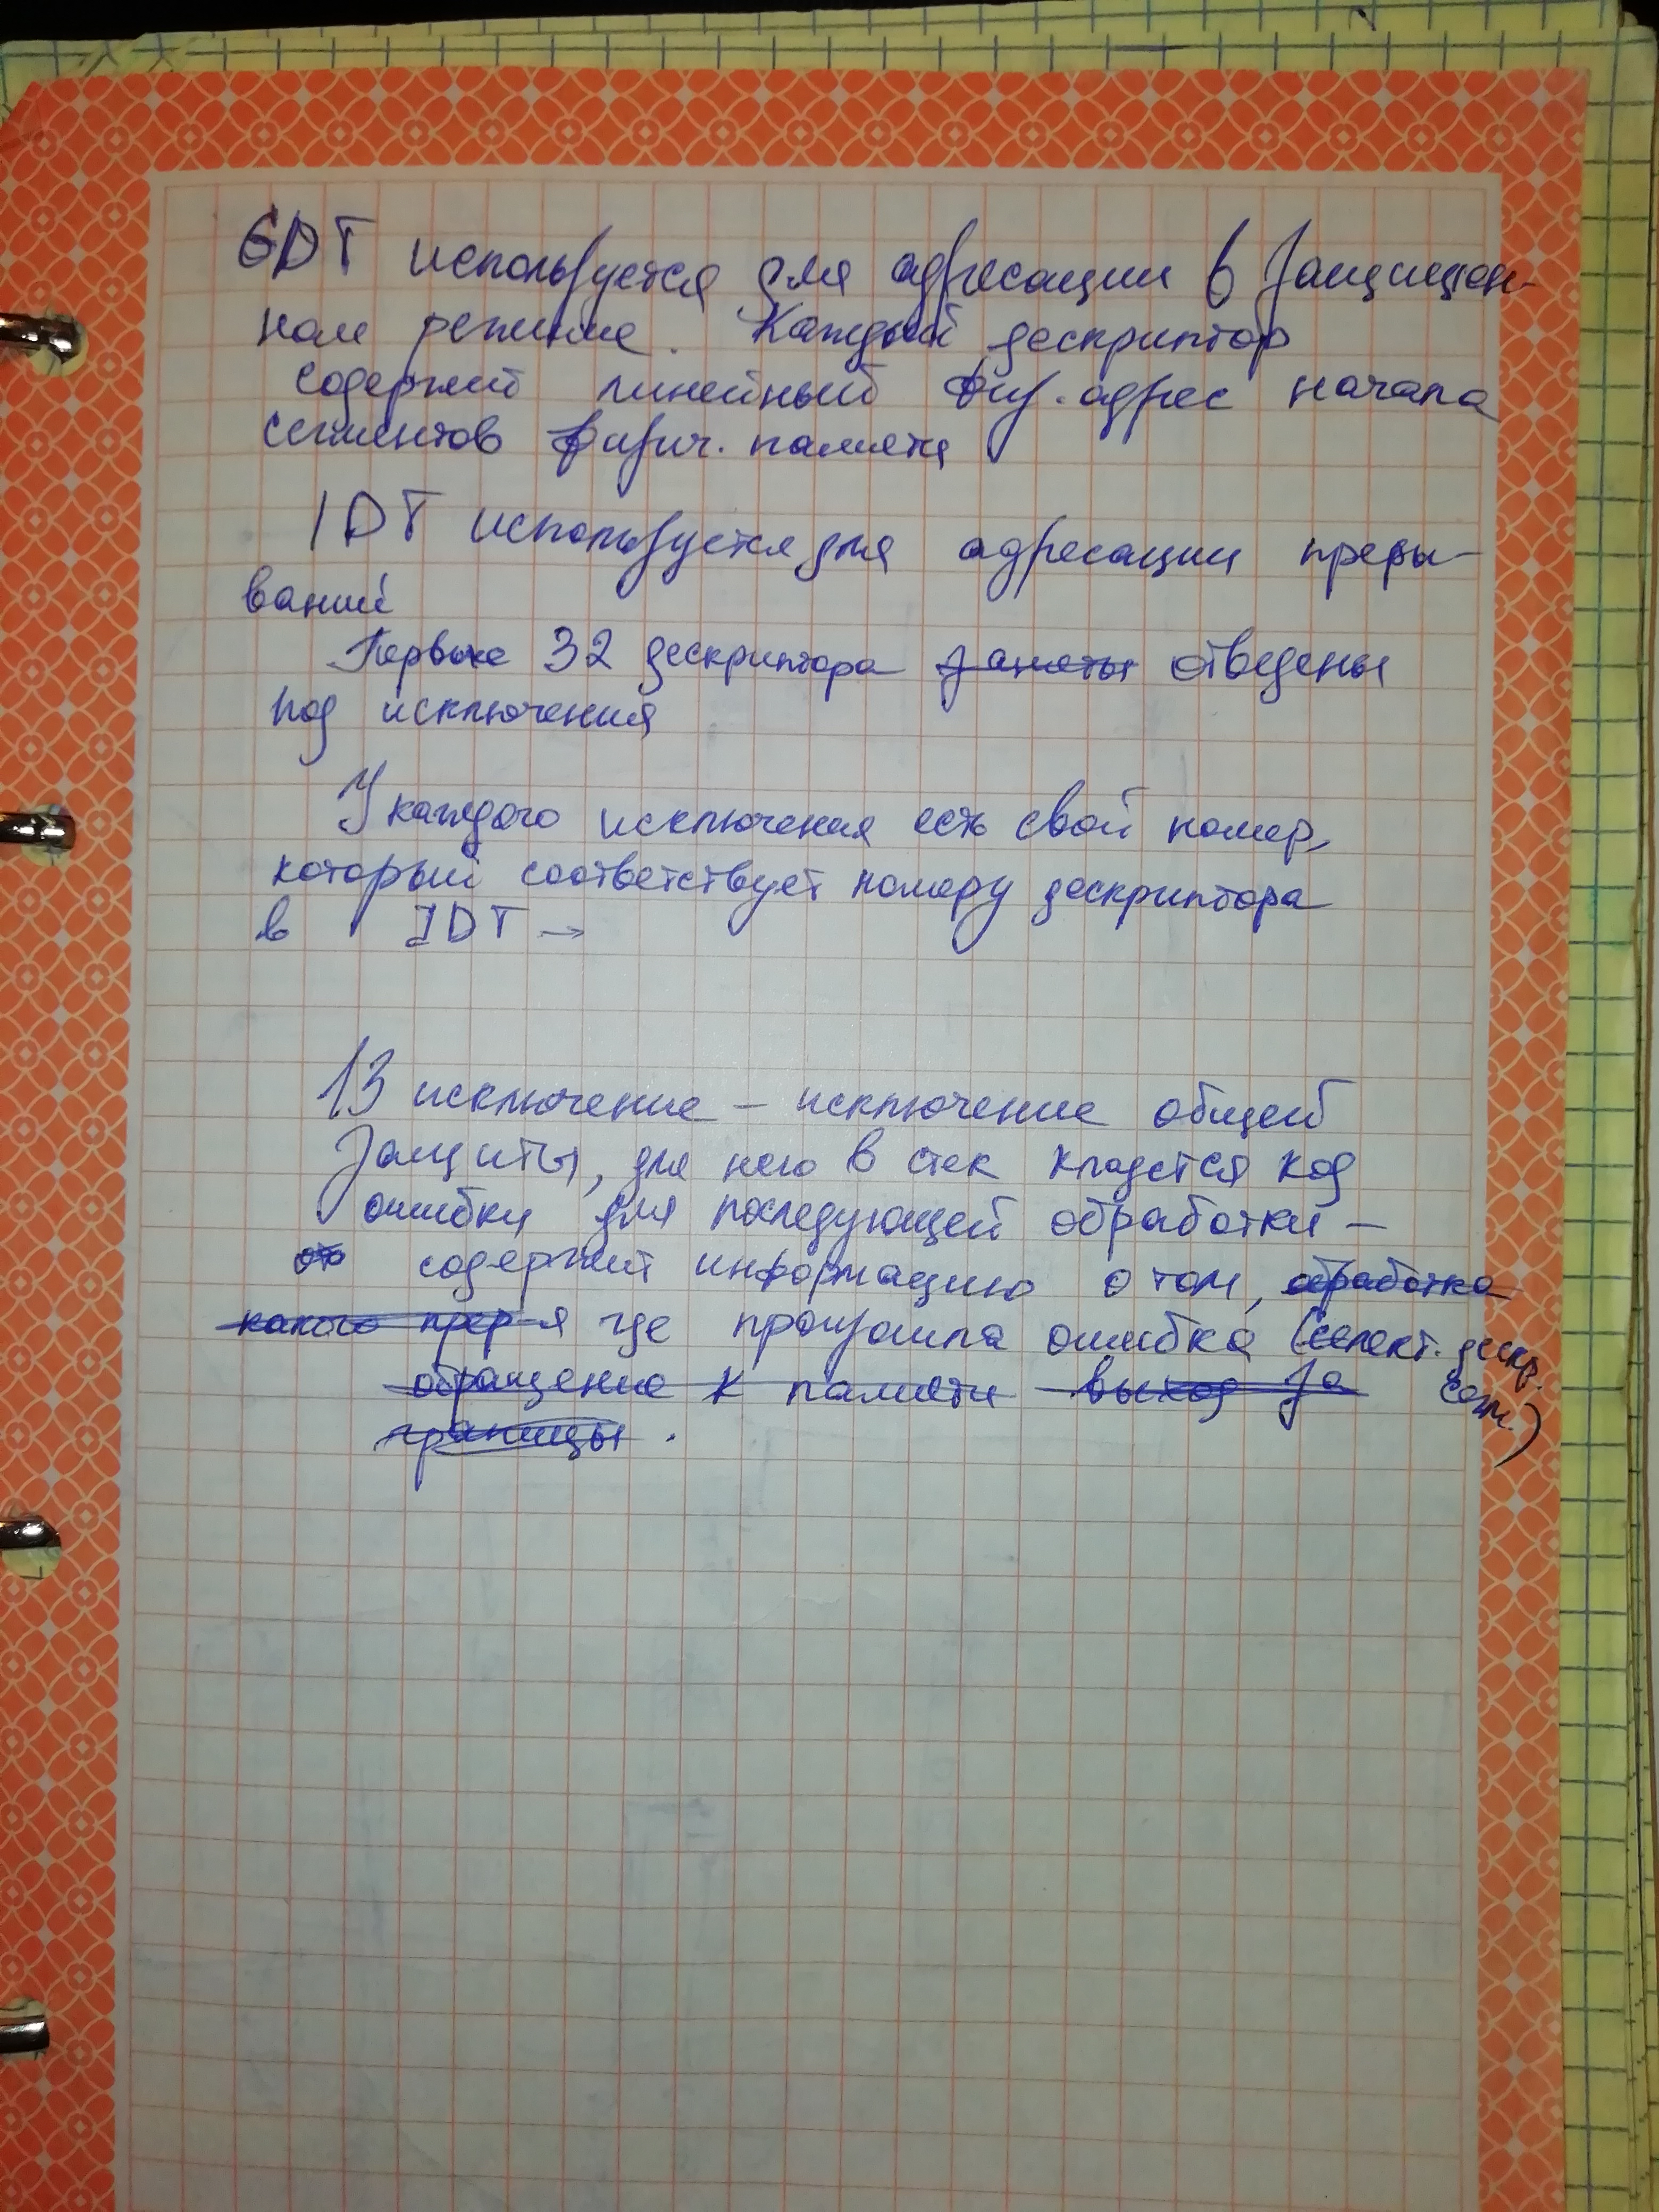 GDT используется для адресации в защищен-
ном режиме. Каждый дескриптор
содержит линейный физ. адрес начала
сегментов физич. памяти
IDT используется для адресации преры-
ваний
Первые 32 дескриптора заняты отведены
под исключения
У каждого исключения есть свой номер,
который соответствует номеру дескриптора
в IDT →
13 исключение – исключение общей
защиты, для него в стек кладется код
ошибки для последующей обработки –
содержит информацию о том, обработка
какого прер-я где произошла ошибка (селект. дескр.
обращение к памяти выход за сегм.)
границы.